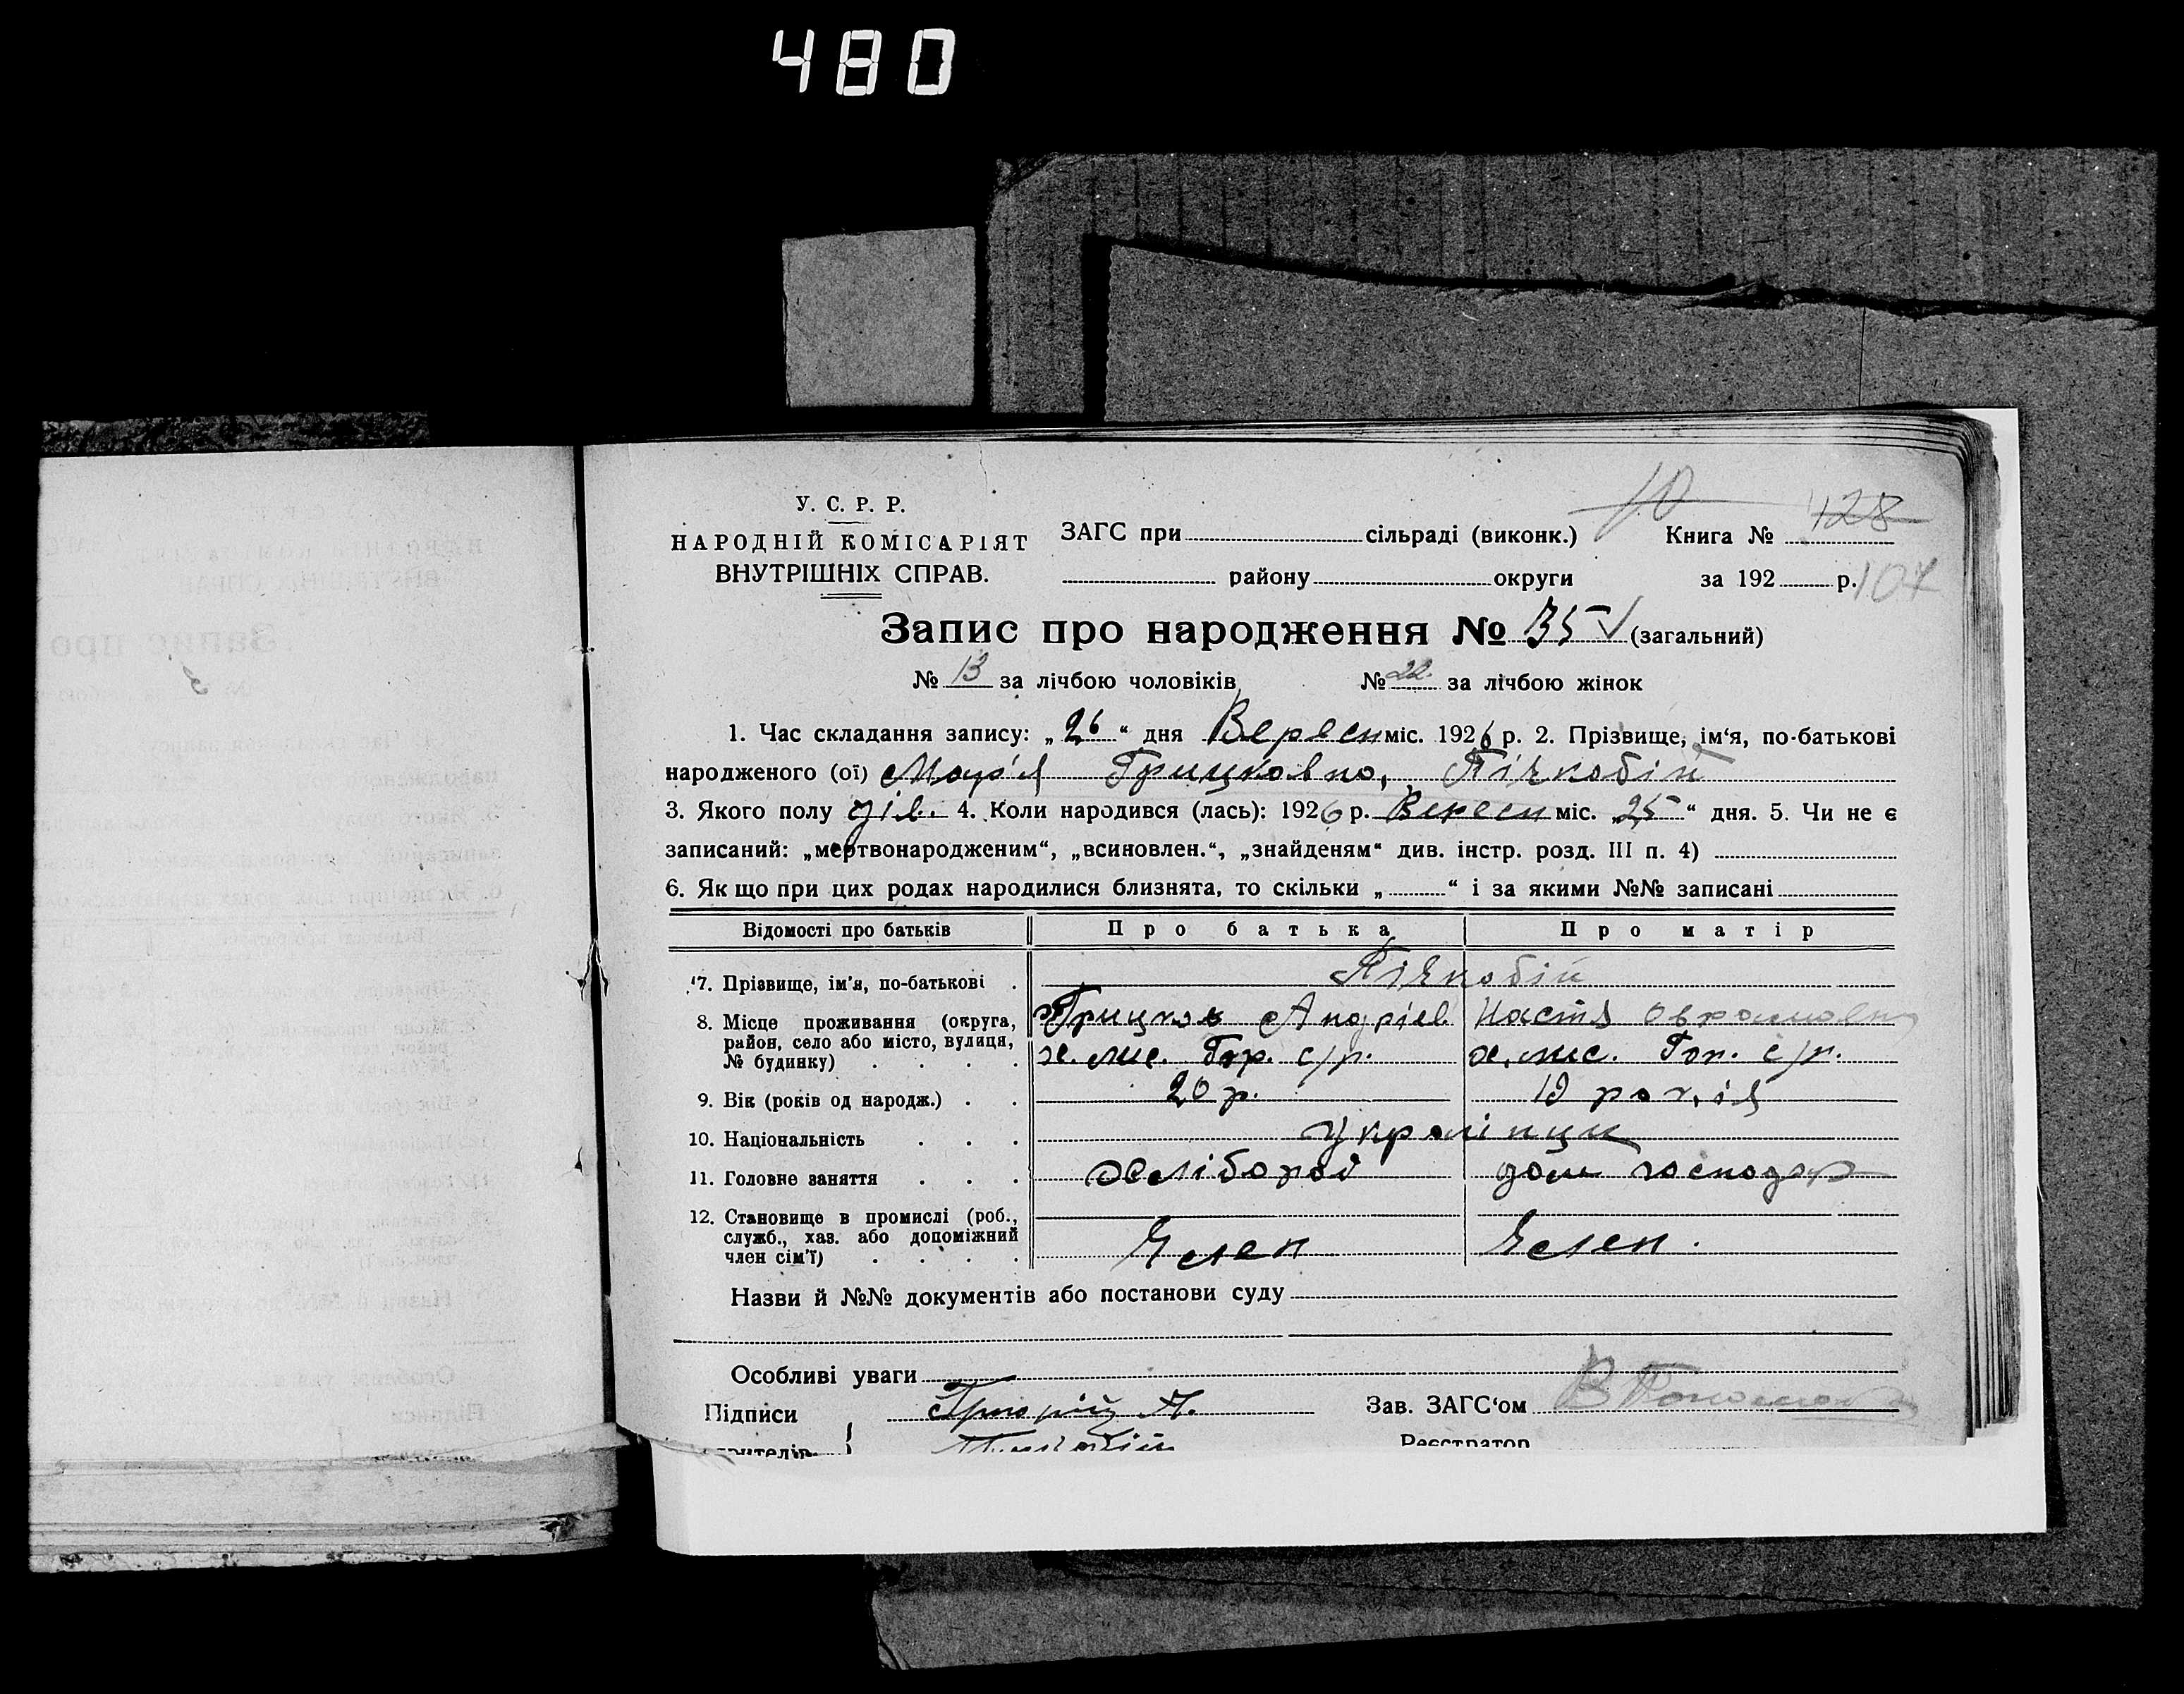 480
У. С. Р. Р.
НАРОДНІЙ КОМІСАРІЯТ
ВНУТРІШНІХ СПРАВ.
ЗАГС при сільраді (виконк.) 10 Книга № 128
району округи за 192 р. 107
Запис про народження № 35 (загальний)
№ 13 за лічбою чоловіків № 22 за лічбою жінок
1. Час складання запису: „26“ дня Вересн міс. 1926 р. 2. Прізвище, ім‘я, по-батькові
народженого (ої) Марія Грицковна,
3. Якого полу дів. 4. Коли народився (лась): 1926 р. Вересн міс. „25“ дня. 5. Чи не є
записаний: „мертвонародженим“, „всиновлен.“, „знайденям“ див. інстр. розд. III п. 4)
6. Якщо при цих родах народилися близнята, то скільки „ “ і за якими №№ записані
Відомості про батьків Про батька Про матір
7. Прізвище, ім’я, по-батькові
8. Місце проживання (округа, Грицько Андріев Настя Оврамовна
район, село або місто, вулиця, х. с/р. х. с/р.
№ будинку)
9. Вік (років од народж.) 20 р. 19 років
10. Національність Українци
11. Головне заняття Хлібороб дом господар
12. Становище в промислі (роб.,
служб., хаз. або допоміжний
член сім’ї) Член Член.
Назви й №№ документів або постанови суду
Особливі уваги
Підписи Григорій А. Зав. ЗАГС‘ом
Реєстратор